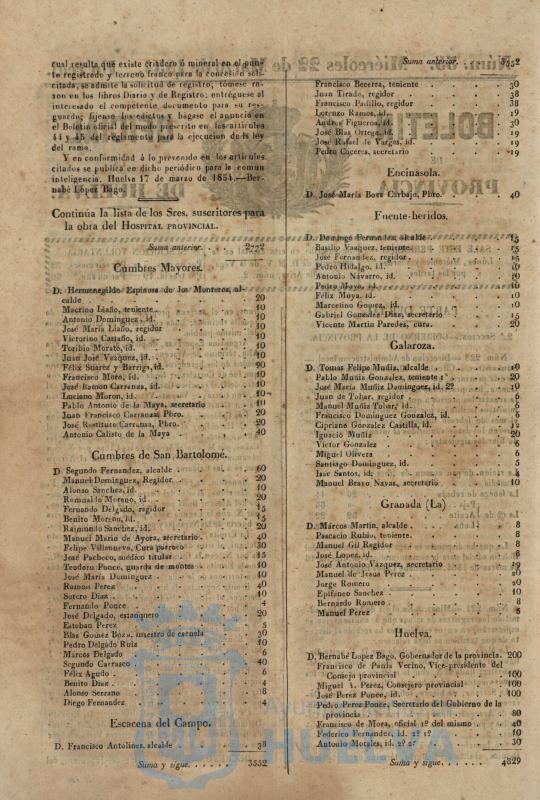 cual resulta que existe criadero ó mineral en el pun-
to registrado y terreno franco para la concesion soli-
citada, se admite la solicitud de registro; tómese ra-
zon en los libros Diario y de Registro; entréguese al
interesado el competente documento para su res-
guardo; fíjense los edictos y hágase el anuncio en
el Boletin oficial del modo prescrito en los artículos
44 y 45 del reglamento para la ejecucion de la ley
del ramo.
Y en conformidad á lo prevenido en los artículos
citados se publica en dicho periódico para la comun
inteligencia. Huelva 17 de marzo de 1854.—Ber-
nabé López Bago.
Continúa la lista de los Sres. suscritores para
la obra del HOSPITAL PROVINCIAL.
Suma anterior. . . 2772
Cumbres Mayores.
D. Hermenegildo Espinosa de los Monteros, al-
calde . . . . 20
Macrino Liaño, teniente . . . 10
Antonio Dominguez, id. . . . 10
José María Liaño, regidor . . . 10
Victorino Castaño, id. . . . 10
Toribio Morato, id. . . . 10
Juan José Vazquez, id. . . . 10
Félix Suarez y Barriga, id. . . . 20
Francisco Moro, id. . . . 10
José Ramon Carranza, id. . . . 10
Luciano Moron, id. . . . 10
Pablo Antonio de la Maya, secretario . . 10
Juan Francisco Carranza, Pbro. . . . 20
José Restituto Carranza, Pbro. . . . 20
Antonio Calisto de la Maya . . . 40
Cumbres de San Bartolomé.
D. Segundo Fernandez, alcalde . . . 60
Manuel Dominguez, Regidor . . . 20
Alonso Sanchez, id. . . . 10
Romualdo Moreno, id. . . . 20
Fernando Delgado, regidor . . . 15
Benito Moreno, id. . . . 15
Raimundo Sanchez, id. . . . 20
Manuel María de Ayora, secretario . . 40
Felipe Villanueva, Cura párroco . . 30
José Pacheco, médico titular . . . 15
Teodoro Ponce, guarda de montes . . 10
José María Dominguez . . . 10
Ramon Perez . . . 40
Sotero Diaz . . . 10
Fernando Ponce . . . 4
José Delgado, estanquero . . . 20
Esteban Perez . . . 5
Blas Gomez Boza, maestro de escuela . . 30
Pedro Delgado Ruiz . . . 10
Márcos Delgado . . . 6
Segundo Carrasco . . . 40
Félix Agudo . . . 6
Benito Diaz . . . 4
Alonso Serrano . . . 8
Diego Fernandez . . . 4
Escacena del Campo.
D. Francisco Antolinez, alcalde . . . 38
Suma y sigue. . . . . . 3552
Suma anterior. . . 3552
Francisco Becerra, teniente . . . 30
Juan Tirado, regidor . . . 38
Francisco Padillo, regidor . . . 38
Lorenzo Ramos, id. . . . 19
Andres Figueroa, id. . . . 30
José Blas Ortega, id. . . . 19
José Rafael de Vargas, id. . . . 19
Pedro Cáceres, secretario . . . 19
Encinasola.
D. José María Bors Carbajo, Pbro. . . . 40
Fuente-heridos.
D. Domingo Fernandez, alcalde . . . 15
Basilio Vazquez, teniente . . . 15
José Fernandez, regidor . . . 15
Pedro Hidalgo, id. . . . 10
Antonio Navarro, id. . . . 10
Pedro Moya, id. . . . 10
Félix Moya, id. . . . 10
Marcelino Gomez, id. . . . 10
Gabriel Gonzalez Diaz, secretario . . 15
Vicente Martin Paredes, cura. . . . 20
Galaroza.
D. Tomas Felipe Muñiz, alcalde . . . 10
Pablo Muñiz Gonzalez, teniente 1º . . 20
José María Muñiz Dominguez, id. 2º . . 10
Juan de Tobar, regidor . . . 6
Manuel Muñiz Tobar, id. . . . 6
Francisco Dominguez Gonzalez, id. . . 6
Cipriano Gonzalez Castilla, id. . . 12
Ignacio Muñiz . . . 20
Victor Gonzalez . . . 6
Miguel Olivera . . . 6
Santiago Dominguez, id. . . . 5
Isac Santos, id. . . . 4
Manuel Bravo Navas, secretario . . 10
Granada (La)
D. Márcos Martin, alcalde . . . 8
Pascacio Rubio, teniente. . . . 8
Manuel Gil Regidor . . . 8
José Lopez, id. . . . 8
José Antonio Vazquez, secretario . . 19
Manuel de Jesus Perez . . . 20
Jorge Romero . . . 20
Epifáneo Sanchez . . . 10
Bernardo Romero . . . 8
Manuel Perez . . . 5
Huelva.
D. Bernabé Lopez Bago, Gobernador de la provincia. 200
Francisco de Paula Vecino, Vice-presidente del
Consejo provincial . . . 100
Miguel A. Perez, Consejero provincial . . 100
José Perez Ponce, id. . . . 100
Pedro Perez Ponce, Secretario del Gobierno de la
provincia . . . 80
Francisco de Mora, oficial 1º del mismo . . 40
Federico Fernandez, id. 2º 1º . . . 10
Antonio Morales, id. 2º 2º . . . 30
Suma y sigue. . . . . 4829
HUELVA